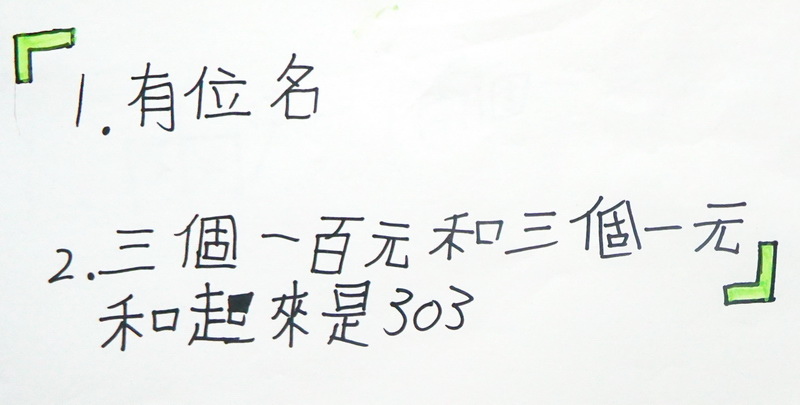 1. 有位名
2. 三個一百元和三個一元
和起來是303